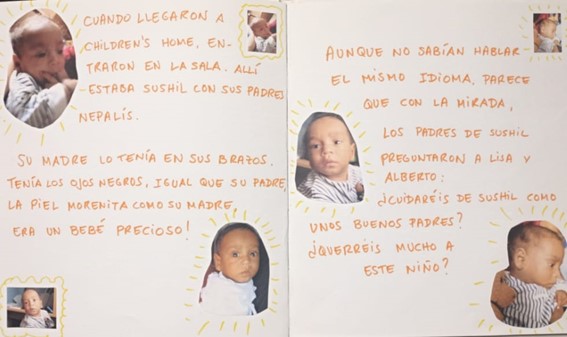 CUANDO LLEGARON A
CHILDREN'S HOME, EN-
TRARON EN LA SALA. ALLÍ
ESTABA SUSHIL CON SUS PADRES
NEPALÍS.
SU MADRE LO TENÍA EN SUS BRAZOS.
TENÍA LOS OJOS NEGROS, IGUAL QUE SU PADRE,
LA PIEL MORENITA COMO SU MADRE,
ERA UN BEBÉ PRECIOSO!
AUNQUE NO SABÍAN HABLAR
EL MISMO IDIOMA, PARECE
QUE CON LA MIRADA,
LOS PADRES DE SUSHIL
PREGUNTARON A LISA Y
ALBERTO:
¿CUIDARÉIS DE SUSHIL COMO
UNOS BUENOS PADRES?
¿QUERRÉIS MUCHO A
ESTE NIÑO?